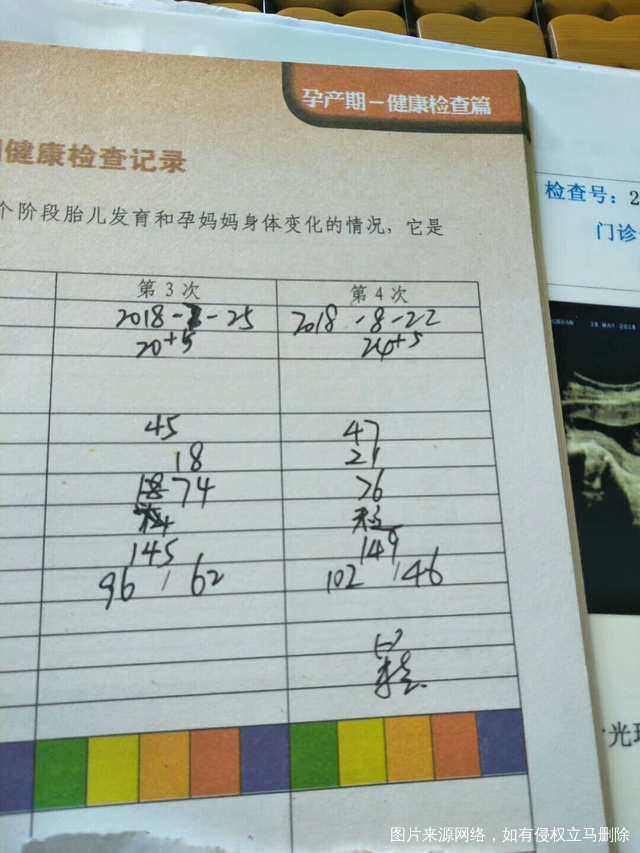 孕产期－健康检查篇
健康检查记录
个阶段胎儿发育和孕妈妈身体变化的情况，它是
检查号：2
门诊
28 MAY 2018
第3次 第4次
2018-7-25 2018-8-22
20+5 24+5
45 47
18 21
74 26
145 149
96/62 102/46
(-)
光环
图片来源网络，如有侵权立马删除